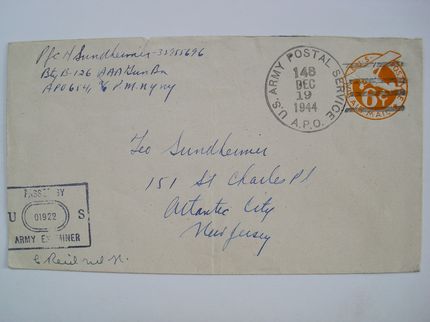 Pfc H Sundheimer - 32955696
Bty B-126 AAA Gun Bn
APO 654, % P.M. N.Y. N.Y.
U.S. ARMY POSTAL SERVICE
148
DEC
19
1944
A.P.O.
6¢
Leo Sundheimer
151 St Charles Pl
Atlantic City
New Jersey
PASSED BY
U 01922 S
ARMY EXAMINER